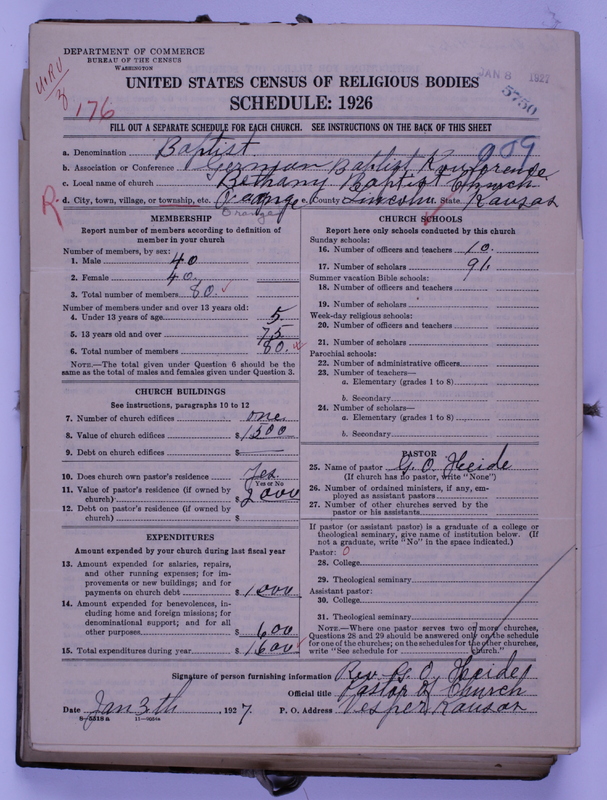 DEPARTMENT OF COMMERCE
BUREAU OF THE CENSUS
WASHINGTON
JAN 8 1927
5750
176
UNITED STATES CENSUS OF RELIGIOUS BODIES
SCHEDULE: 1926
FILL OUT A SEPARATE SCHEDULE FOR EACH CHURCH. SEE INSTRUCTIONS ON THE BACK OF THIS SHEET
909
a. Denomination Baptist
b. Association or Conference German Baptist Konference
c. Local name of church Bethany Baptist Church
R d. City, town, village, or township, etc. Orange e. County Lincoln State Kansas
MEMBERSHIP
Report number of members according to definition of
member in your church
Number of members, by sex:
1. Male 40
2. Female 40
3. Total number of members 80
Number of members under and over 13 years old:
4. Under 13 years of age 5
5. 13 years old and over 75
6. Total number of members 80
NOTE.—The total given under Question 6 should be the
same as the total of males and females given under Question 3.
CHURCH BUILDINGS
See instructions, paragraphs 10 to 12
7. Number of church edifices one
8. Value of church edifices $ 1500
9. Debt on church edifices $
10. Does church own pastor's residence? Yes
Yes or No
11. Value of pastor's residence (if owned by
church) $ 2000
12. Debt on pastor's residence (if owned by
church) $
EXPENDITURES
Amount expended by your church during last fiscal year
13. Amount expended for salaries, repairs,
and other running expenses; for im-
provements or new buildings; and for
payments on church debt $ 1000
14. Amount expended for benevolences, in-
cluding home and foreign missions; for
denominational support; and for all
other purposes $ 600
15. Total expenditures during year $ 1600
CHURCH SCHOOLS
Report here only schools conducted by this church
Sunday schools:
16. Number of officers and teachers 10.
17. Number of scholars 91.
Summer vacation Bible schools:
18. Number of officers and teachers
19. Number of scholars
Week-day religious schools:
20. Number of officers and teachers
21. Number of scholars
Parochial schools:
22. Number of administrative officers
23. Number of teachers—
a. Elementary (grades 1 to 8)
b. Secondary
24. Number of scholars—
a. Elementary (grades 1 to 8)
b. Secondary
PASTOR
25. Name of pastor G. O. Heide
(If church has no pastor, write "None")
26. Number of ordained ministers, if any, em-
ployed as assistant pastors
27. Number of other churches served by the
pastor or his assistants
If pastor (or assistant pastor) is a graduate of a college or
theological seminary, give name of institution below. (If
not a graduate, write "No" in the space indicated.)
Pastor: 0
28. College
29. Theological seminary
Assistant pastor:
30. College
31. Theological seminary
NOTE.—Where one pastor serves two or more churches,
Questions 28 and 29 should be answered only on the schedule
for one of the churches; on the schedules for the other churches,
write "See schedule for church."
Signature of person furnishing information Rev. G. O. Heide
Official title Pastor of Church
Date Jan 3th, 1927 P. O. Address Vesper Kansas
8—5518a 11—9056a